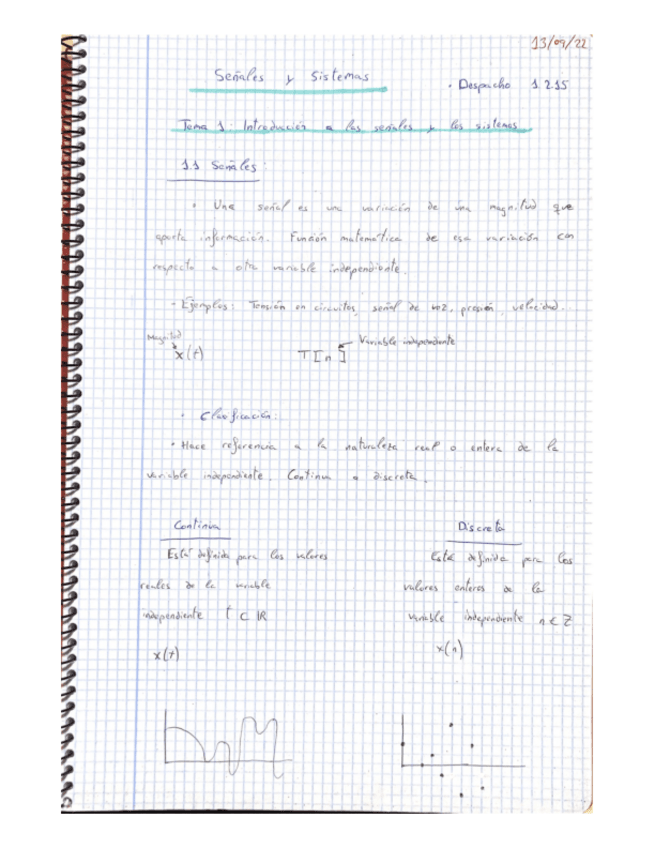 13/09/22
Señales y Sistemas
· Despacho 1.2.15
Tema 1: Introducción a las señales y los sistemas
1.1 Señales:
· Una señal es una variación de una magnitud que
aporta información. Función matemática de esa variación con
respecto a otra variable independiente.
· Ejemplos: Tensión en circuitos, señal de voz, presión, velocidad.
Magnitud
x(t)
T[n]
Variable independiente
· Clasificación:
· Hace referencia a la naturaleza real o entera de la
variable independiente. Continua o discreta.
Continua
Está definida para los valores
reales de la variable
independiente t ⊂ ℝ
x(t)
Discreta
Está definida para los
valores enteros de la
variable independiente n ∈ Z
x(n)